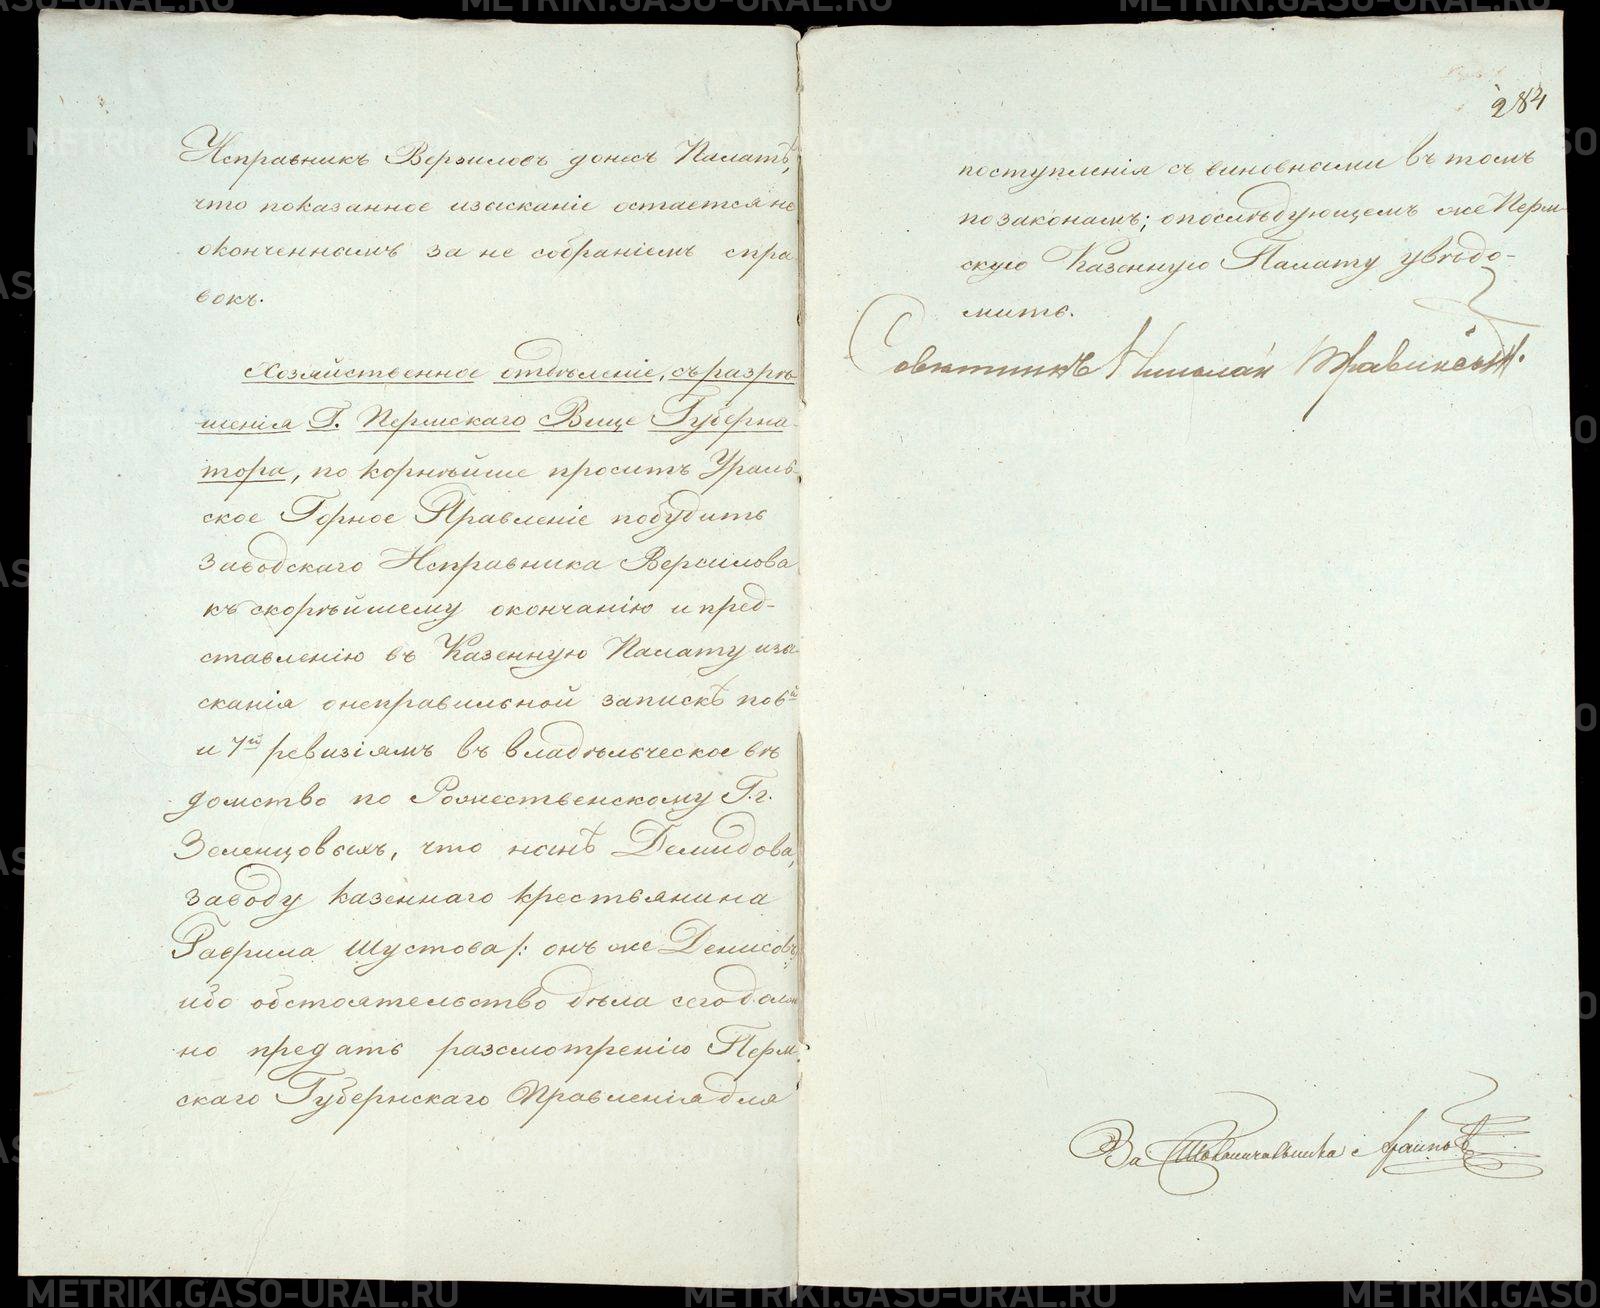 Исправникъ Версиловъ донесъ Палатѣ,
что показанное изысканіе остается не
оконченнымъ за не собраніемъ спра
вокъ.
Хозяйственное отдѣленіе, съ разрѣ
шенія Г. Пермскаго Вице Губерна
тора, покорнѣйше проситъ Ураль
ское Горное Правленіе побудить
Заводскаго Исправника Версилова
къ скорѣйшему окончанію и пред-
ставленію въ Казенную Палату изы
сканія о неправильной запискѣ по 6й
и 7й ревизіямъ въ владѣльческое вѣ
домство по Рожественскому Г.г.
Зеленцовыхъ, что нынѣ Демидова,
заводу казеннаго крестьянина
Гаврила Шустова /: онъ же Денисовъ
ибо обстоятельство дѣла сего долж
но предать разсмотренію Перм
скаго Губернскаго Правленія для
284
поступленія съ виновными въ томъ
по законамъ; о послѣдующемъ же Перм-
скую Казенную Палату увѣдо-
мить.
Совѣтникъ Николай
За Столоначальника
METRIKI.GASO-URAL.RU